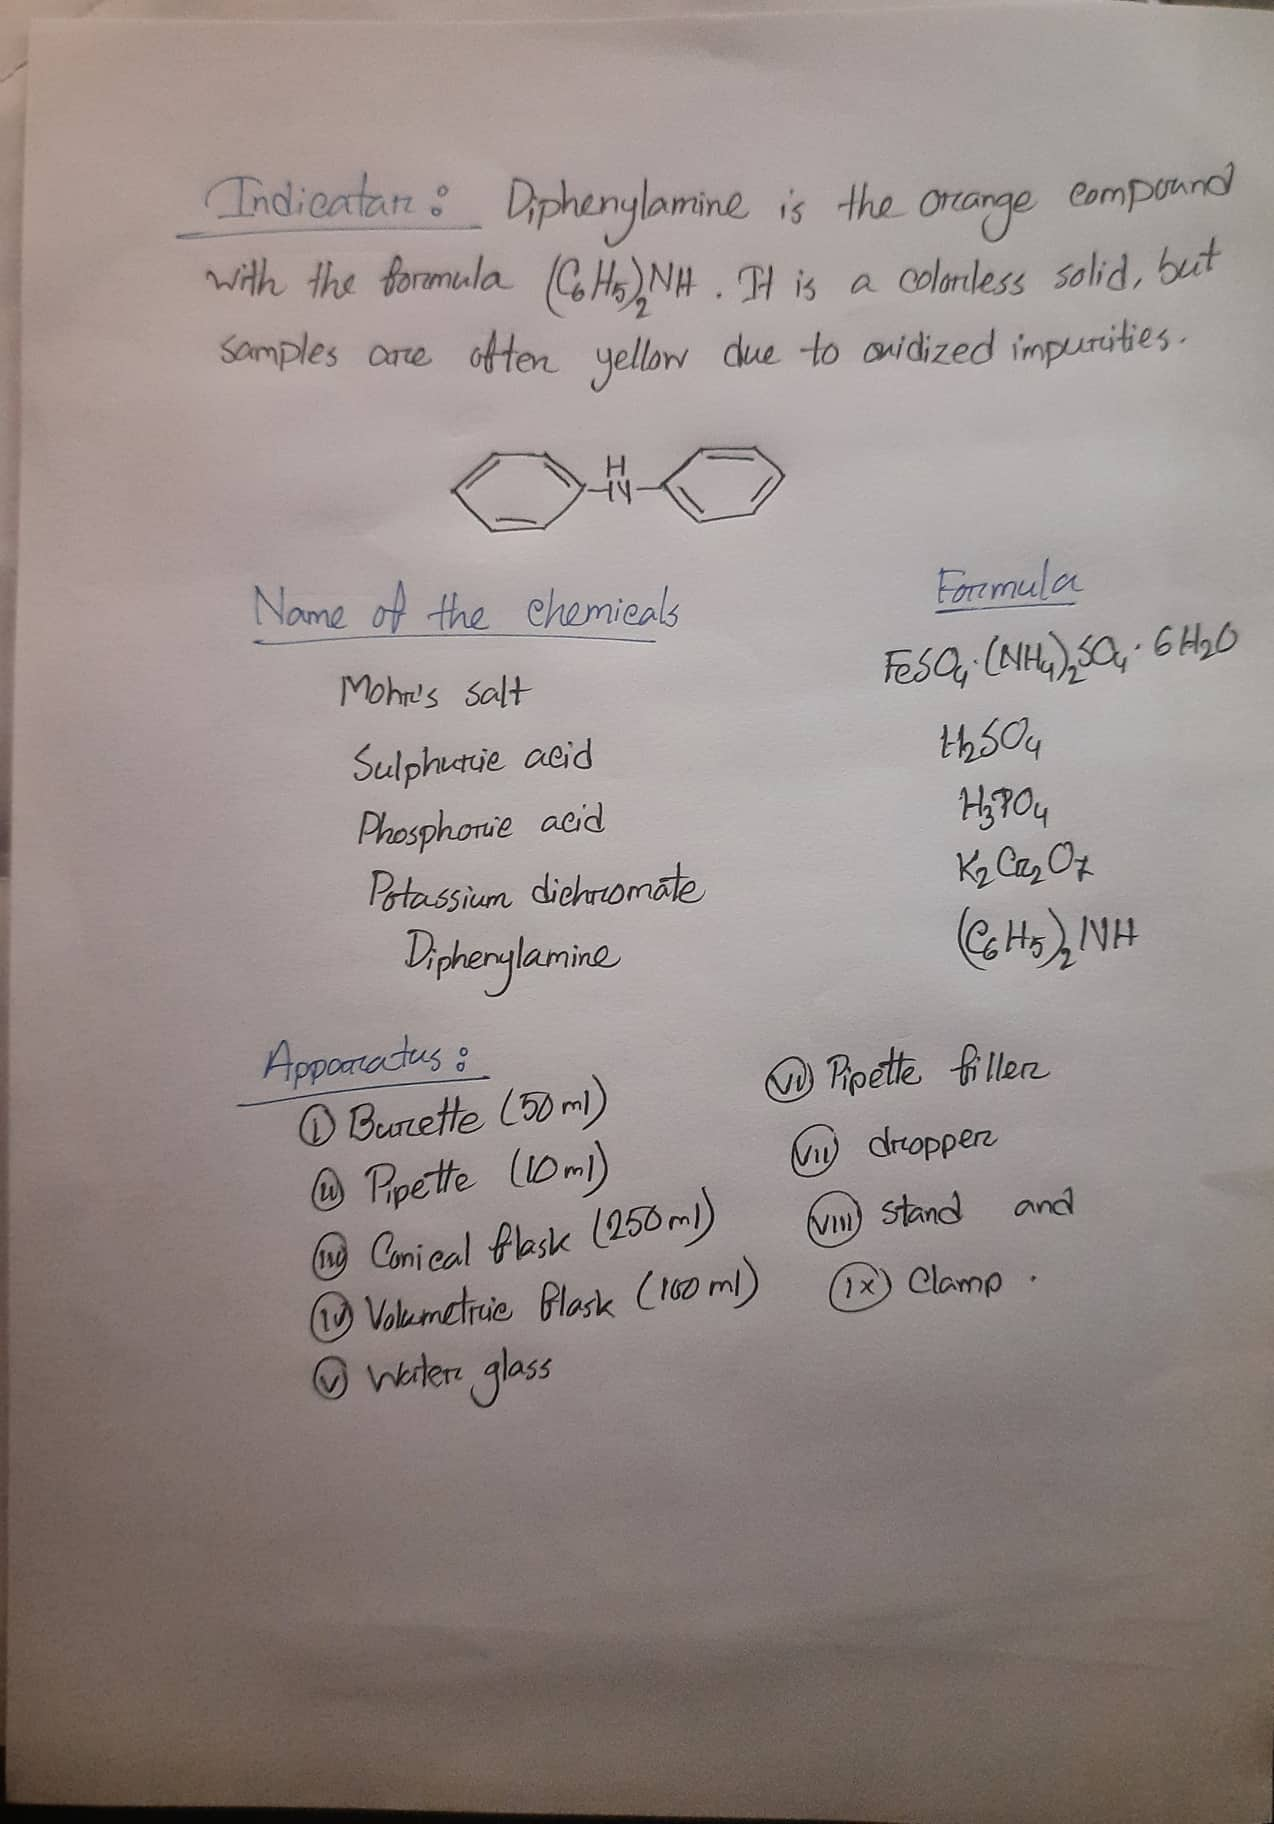 Indicator: Diphenylamine is the orange compound
with the formula (C₆H₅)₂NH. It is a colorless solid, but
samples are often yellow due to oxidized impurities.
H
N
Name of the chemicals Formula
Mohr's salt FeSO₄·(NH₄)₂SO₄·6H₂O
Sulphuric acid H₂SO₄
Phosphoric acid H₃PO₄
Potassium dichromate K₂Cr₂O₇
Diphenylamine (C₆H₅)₂NH
Apparatus:
(i) Burette (50 ml)
(ii) Pipette (10 ml)
(iii) Conical flask (250 ml)
(iv) Volumetric flask (100 ml)
(v) Water glass
(vi) Pipette filler
(vii) dropper
(viii) stand and
(ix) Clamp.